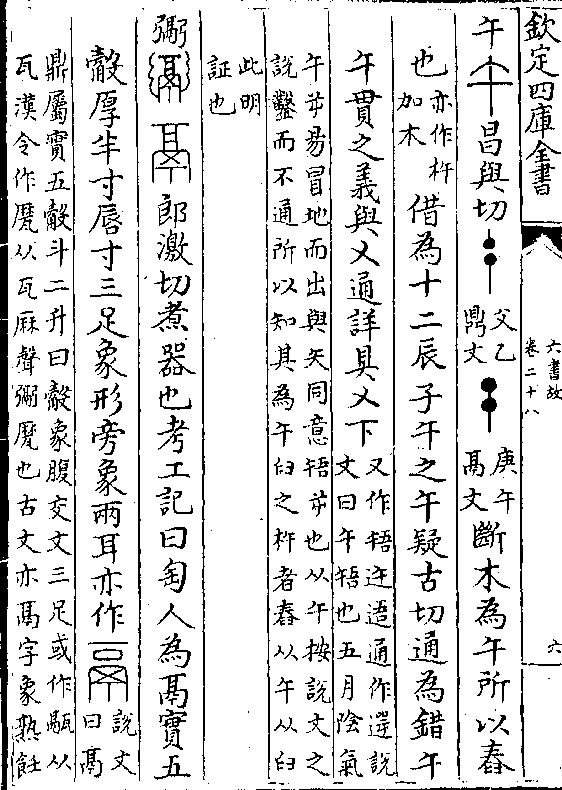 欽定四庫全書
六書故
卷二十八
六
午昌與切
父乙
鼎文
庚午
鬲文
斷木為午所以舂
也
亦作杵
加木
借為十二辰子午之午疑古切通為錯午
午貫之義與㐅通詳具㐅下
又作牾迕遻通作遻說
文曰午牾也五月陰氣
午屰昜冒地而出與矢同意牾屰也从午按說文之
說鑿而不通所以知其為午臼之杵者舂从午从臼
此明
証也
䰜
郎激切煮器也考工記曰匋人為鬲實五
觳厚半寸脣寸三足象形旁象兩耳亦作
說文
曰鬲
鼎屬實五觳斗二升曰觳象腹交文三足或作䰛从
瓦漢令作㽁从瓦厤聲䰜㽁也古文亦鬲字象孰飪